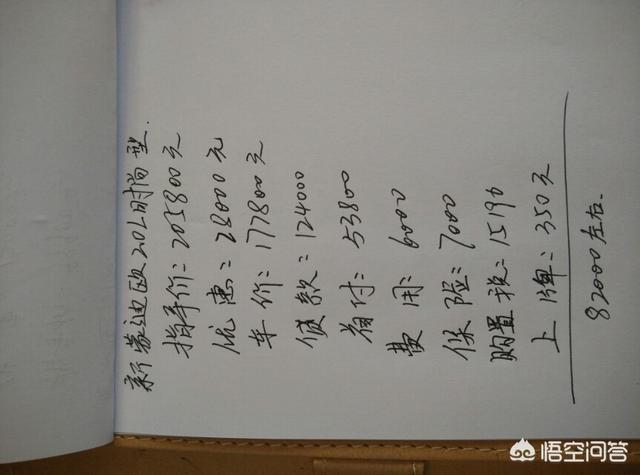 新蒙迪欧 2.0L时尚型.
指导价: 205800元
优惠: 28000元
车价: 177800元
贷款: 124000
首付: 53800
费用: 6000
保险: 7000
购置税: 15196
上牌: 350元
82000左右.
悟空问答